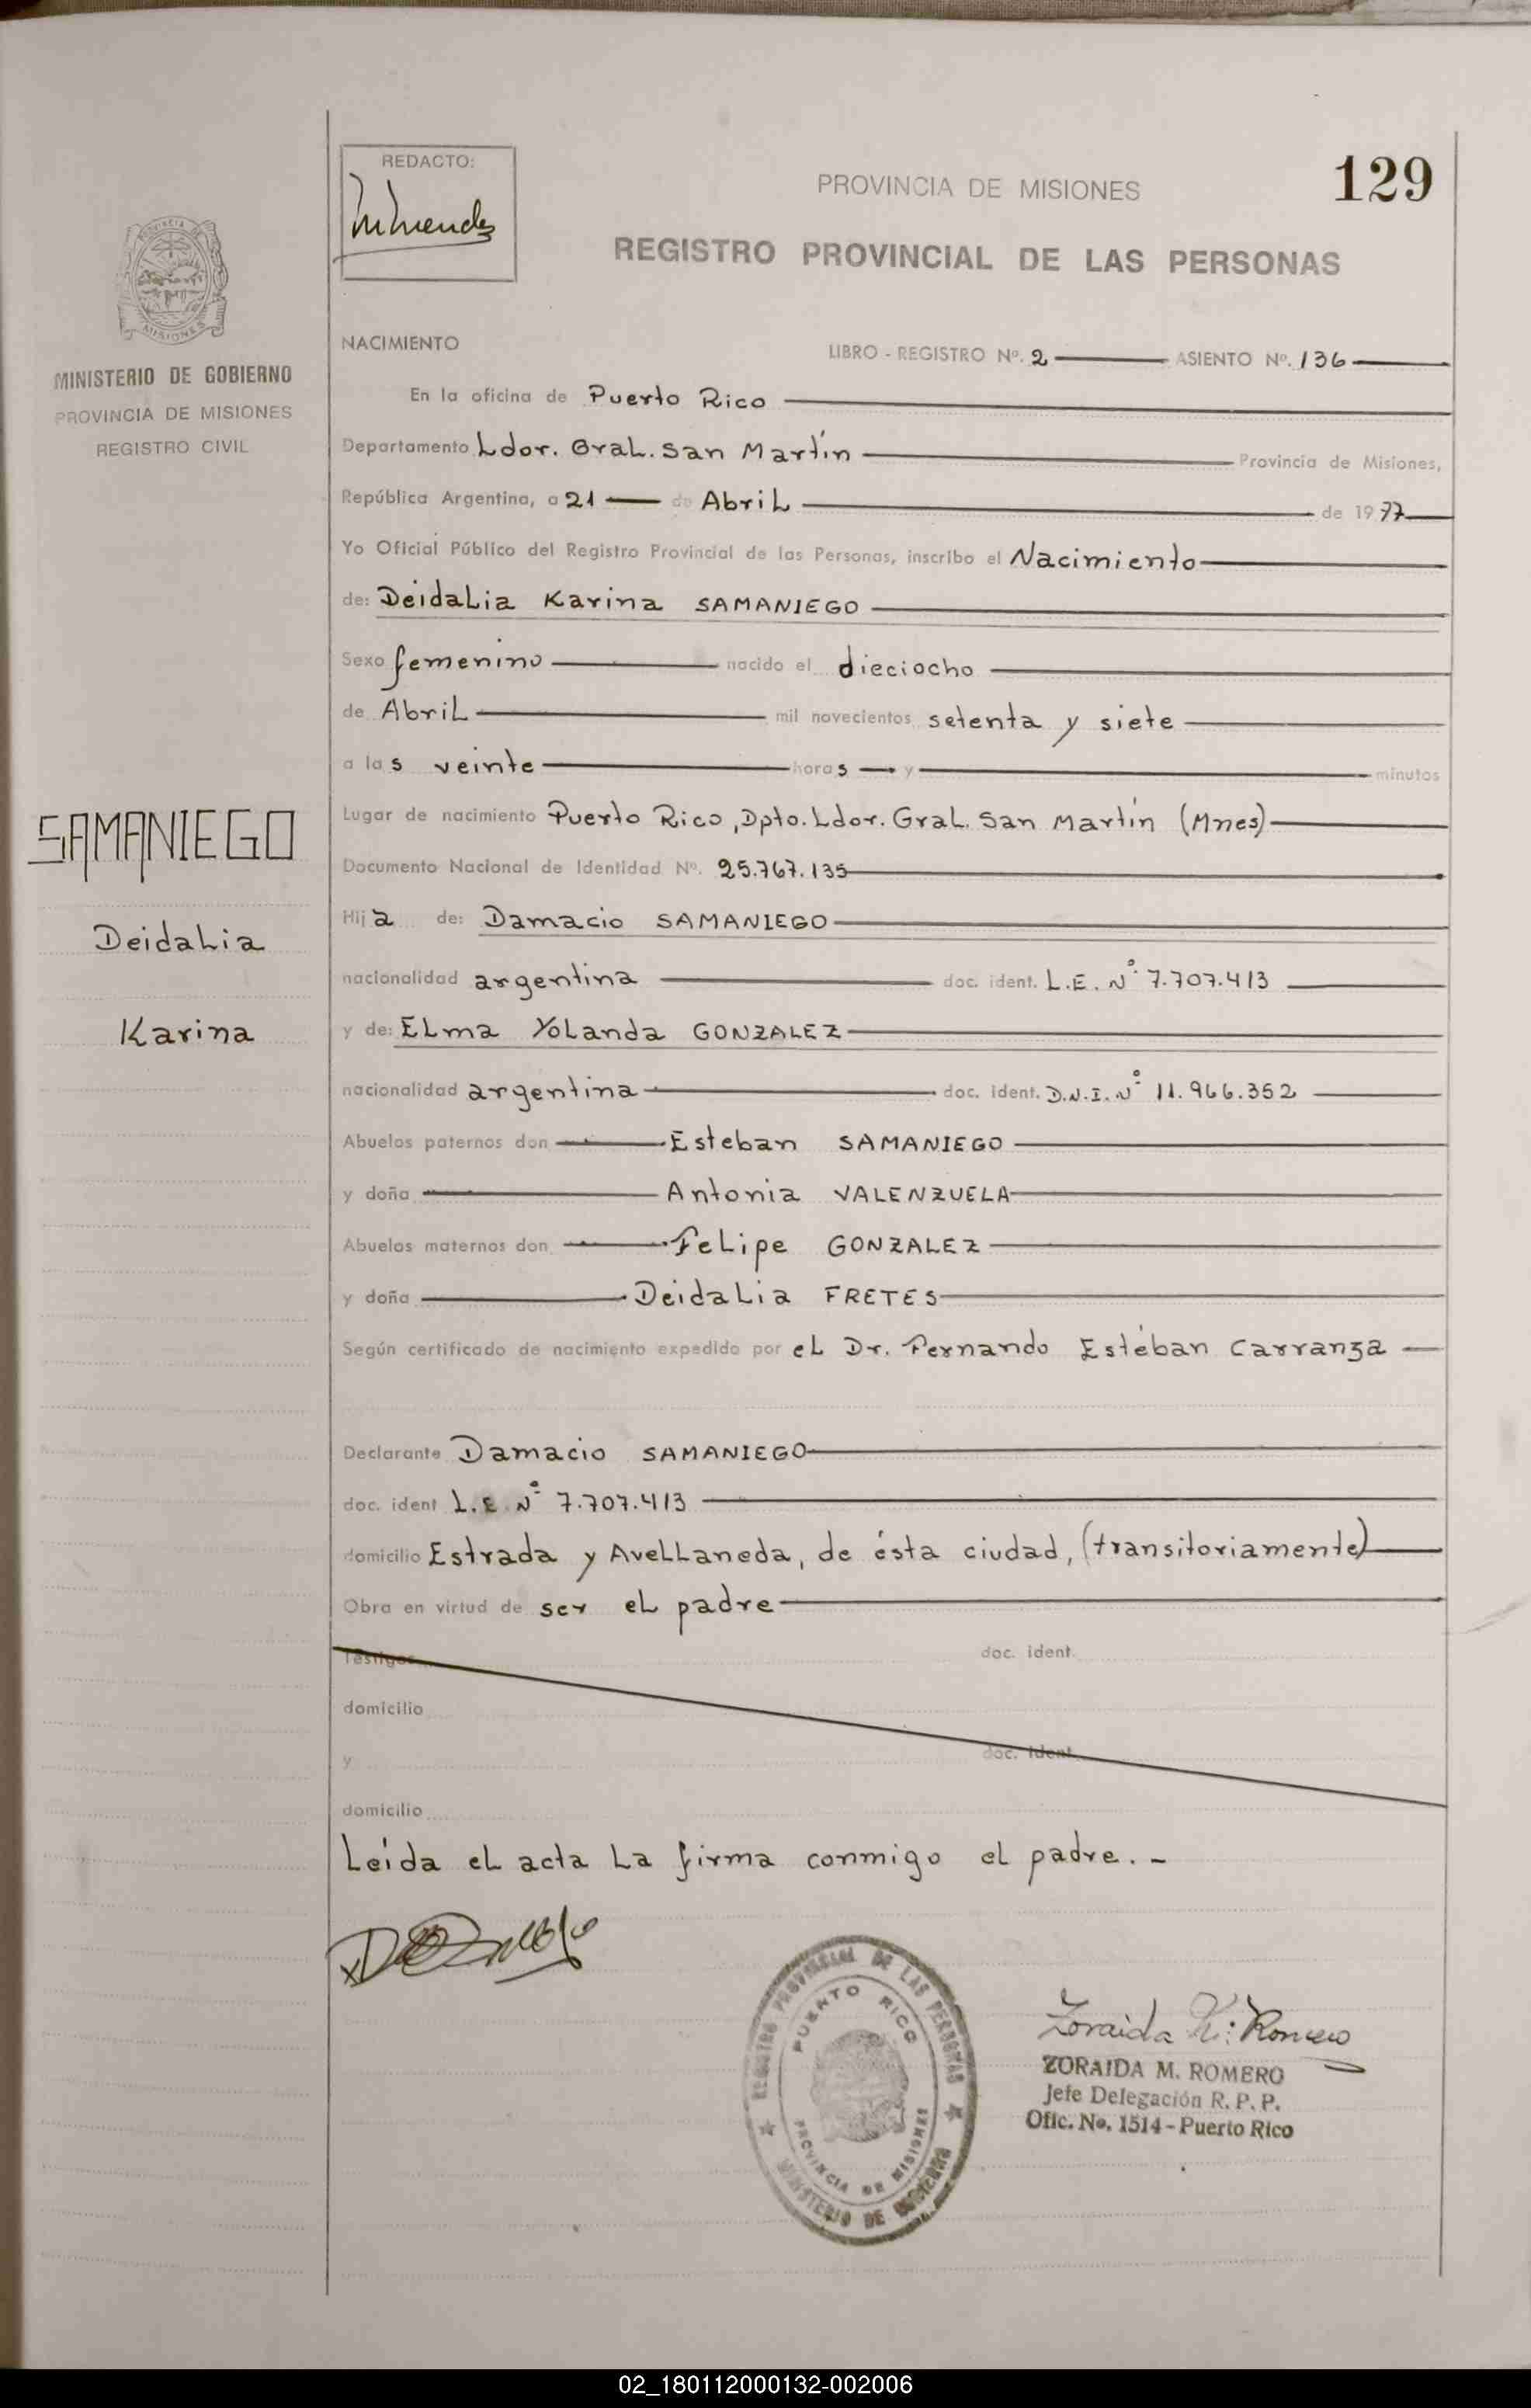 REDACTO:
PROVINCIA DE MISIONES
129
REGISTRO PROVINCIAL DE LAS PERSONAS
MINISTERIO DE GOBIERNO
PROVINCIA DE MISIONES
REGISTRO CIVIL
NACIMIENTO
LIBRO - REGISTRO Nº. 2 ASIENTO Nº. 136
En la oficina de Puerto Rico
Departamento Ldor. Gral. San Martín Provincia de Misiones,
República Argentina, a 21 de Abril de 1977
Yo Oficial Público del Registro Provincial de las Personas, inscribo el Nacimiento
de: Deidalia Karina SAMANIEGO
Sexo femenino nacido el dieciocho
de Abril mil novecientos setenta y siete
a las veinte horas y minutos
SAMANIEGO
Deidalia
Karina
Lugar de nacimiento Puerto Rico, Dpto. Ldor. Gral. San Martín (Mnes)
Documento Nacional de Identidad Nº. 25.767.135
Hija de: Damacio SAMANIEGO
nacionalidad argentina doc. ident. L.E. Nº 7.707.413
y de: Elma Yolanda GONZALEZ
nacionalidad argentina doc. ident. D.N.I. Nº 11.966.352
Abuelos paternos don Esteban SAMANIEGO
y doña Antonia VALENZUELA
Abuelos maternos don Felipe GONZALEZ
y doña Deidalia FRETES
Según certificado de nacimiento expedido por el Dr. Fernando Estéban Carranza
Declarante Damacio SAMANIEGO
doc. ident L.E. Nº 7.707.413
domicilio Estrada y Avellaneda, de ésta ciudad, (transitoriamente)
Obra en virtud de ser el padre
Testigos doc. ident.
domicilio
y doc. ident.
domicilio
Leída el acta la firma conmigo el padre. -
REGISTRO PROVINCIAL DE LAS PERSONAS
PUERTO RICO
PROVINCIA DE MISIONES
MINISTERIO DE GOBIERNO
Zoraida M. Romero
ZORAIDA M. ROMERO
Jefe Delegación R. P. P.
Ofic. No. 1514 - Puerto Rico
02_180112000132-002006